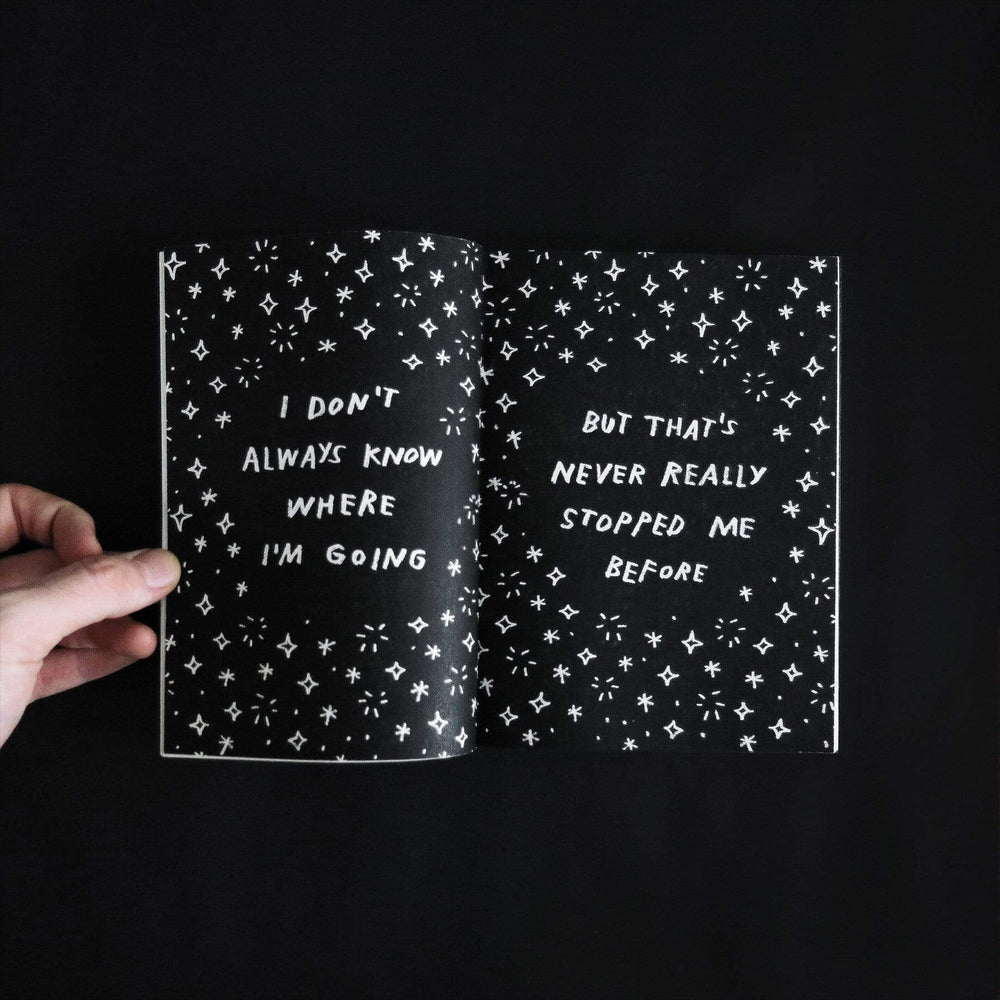 I DON'T
ALWAYS KNOW
WHERE
I'M GOING
BUT THAT'S
NEVER REALLY
STOPPED ME
BEFORE